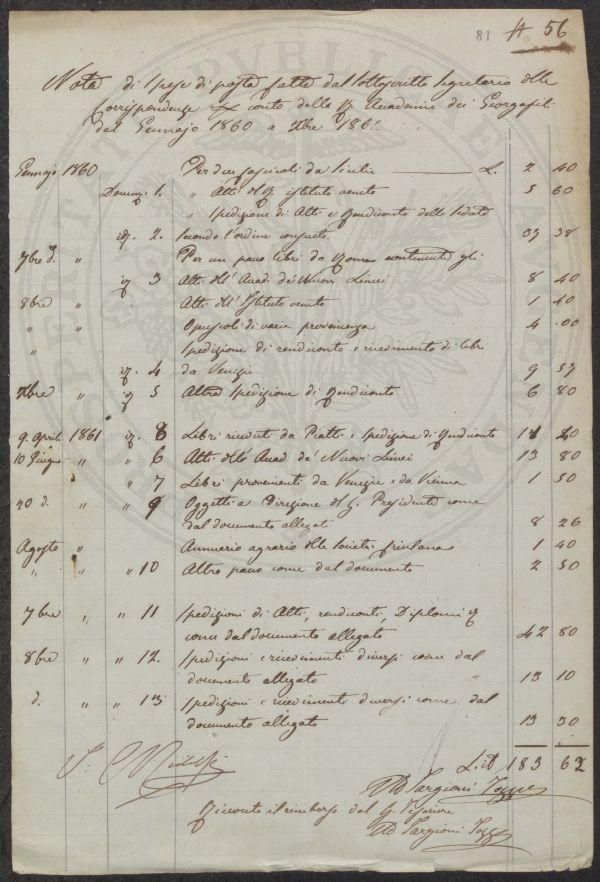 81 A 56
Nota di spese di posta fatte dal sottoscritto segretario delle
Corrispondenze conto della R. Accademia dei Georgofili
dal Gennajo 1860 a Xbre 1861
Gennajo 1860 Per due fascicoli da Sicilia L. 2 40
Docum. 1. " Atti del R. istituto veneto 5 60
" Spedizione di Atti e Rendiconto delle sedute
2. secondo l'ordine consueto 37 38
7bre d. " Per un pacco libri da Roma contenente gli
3 Atti dell'Accad. de' Nuovi Lincei 8 40
8bre " Atti dell'Istituto veneto 1 40
" " Opuscoli di varia provenienza 4 .00
" Spedizione di rendiconto e ricevimento di libri
4 da Venezia 9 57
Xbre " 5 Altra spedizione di Rendiconto 6 80
9. April 1861 Libri ricevuti da Piatti e spedizione di Rendiconto
10 Giugno " " 6 Atti dell'Accad. de' Nuovi Lincei 13 80
" 7 Libri provenienti da Venezia e da Vienna 1 50
20 d. " " 9 Oggetti a Direzione del S. Presidente come
dal documento allegato 8 26
Agosto " Annuario agrario della società friulana 1 40
" " " 10 Altro pacco come dal documento 2 50
7bre " " 11 Spedizioni di Atti, rendiconti, Diplomi
come dal documento allegato 42 80
8bre " " 12. Spedizioni e ricevimenti diversi come dal
documento allegato 13 10
d. " " 13 Spedizioni e ricevimenti diversi come dal
documento allegato 13 30
Lit 183 62
Ad Targioni Tozzetti
Ricevuto il rimborso dal S. Tesoriere
Ad Targioni Tozzetti